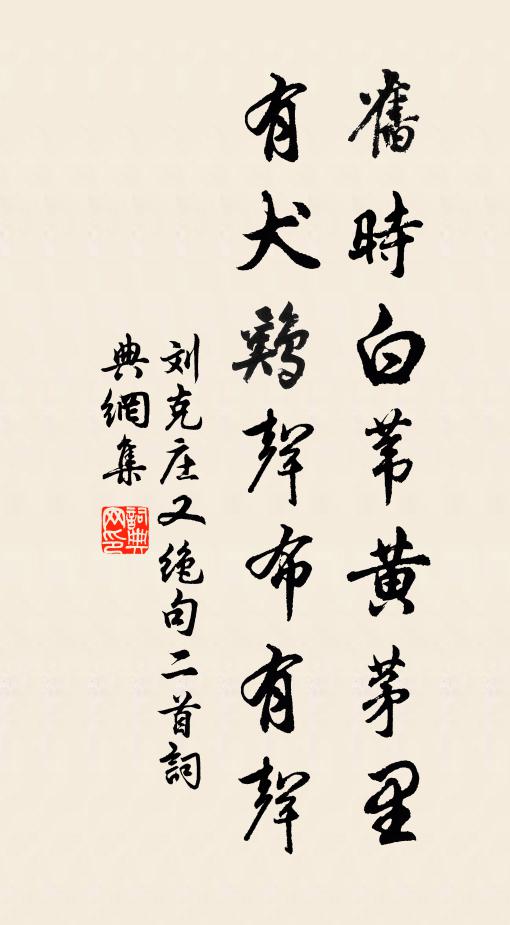 舊時白苇黄茅里
有犬鷄聲布有聲
刘克庄又绝句二首詞
典網集
詞典网印